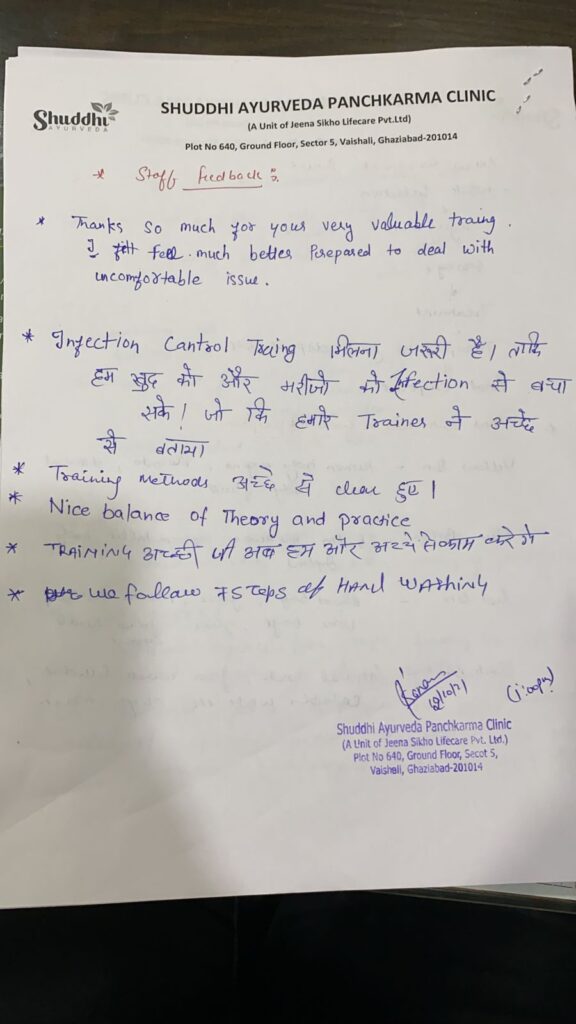 Shuddhi
AYURVEDA
SHUDDHI AYURVEDA PANCHKARMA CLINIC
(A Unit of Jeena Sikho Lifecare Pvt.Ltd)
Plot No 640, Ground Floor, Sector 5, Vaishali, Ghaziabad-201014
* Staff feedback :
* Thanks so much for your very valuable traing.
I feel much better prepared to deal with
uncomfortable issue.
* Infection Cantrol Traing मिलना जरूरी है। ताकि
हम खुद को और मरीजो को Infection से बचा
सके। जो कि हमारे Trainer ने अच्छे
से बताया
* Training methods अच्छे से clear हुए।
* Nice balance of Theory and practice
* TRAINING अच्छी थी अब हम और अच्छे से काम करेगे
* we follow 7 STEPS of HAND WASHING
Shuddhi Ayurveda Panchkarma Clinic
(A Unit of Jeena Sikho Lifecare Pvt. Ltd.)
Plot No 640, Ground Floor, Secot 5,
Vaishali, Ghaziabad-201014